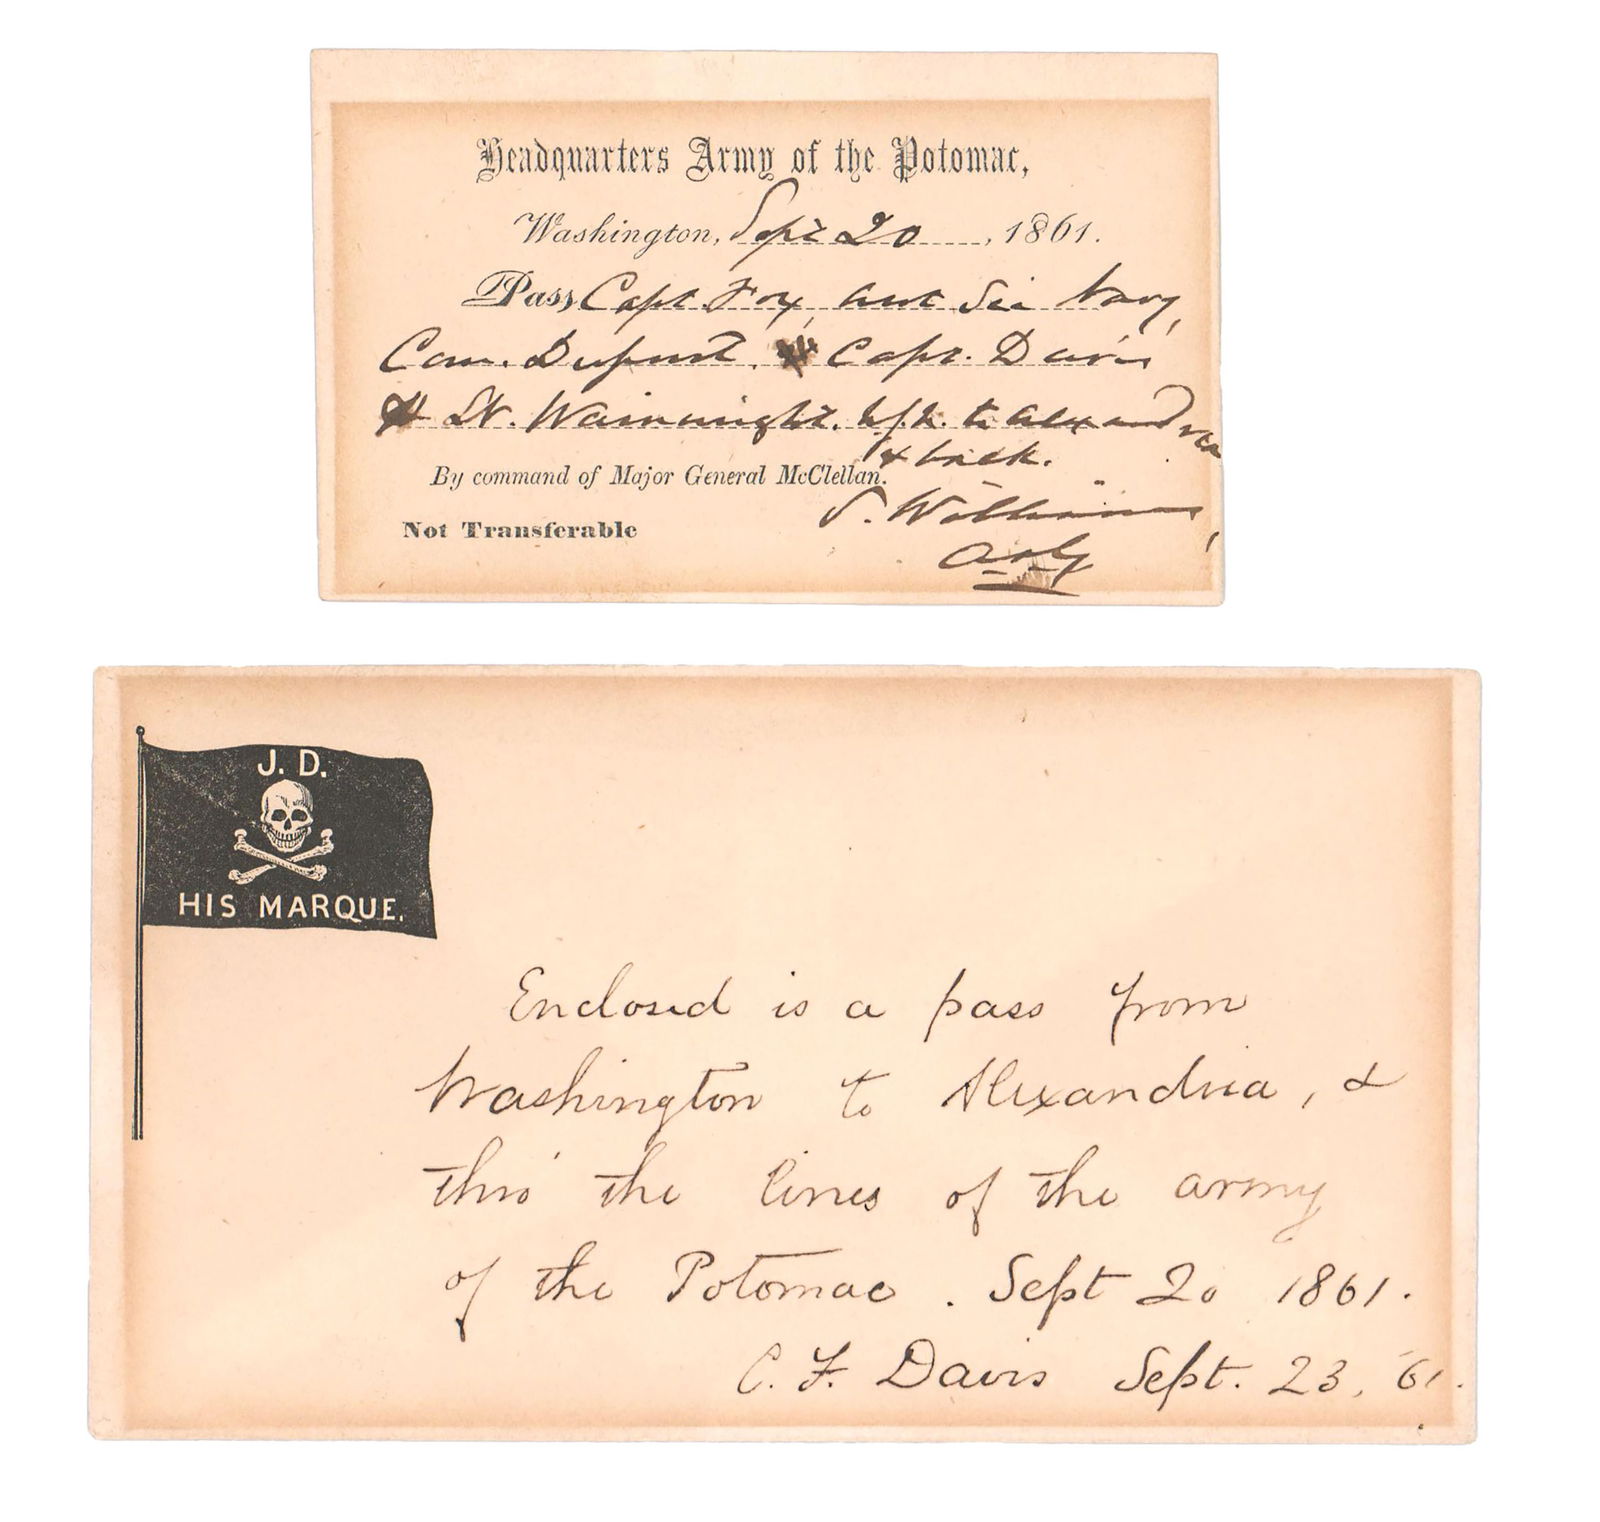 Headquarters Army of the Potomac,
Washington, Sept 20, 1861.
Pass, Capt. Fox, Asst Sec Navy,
Com. Dupont. Capt. Davis
& Lt. Wainwright. to Alexandria
& back.
By command of Major General McClellan.
S. Williams,
Not Transferable
A.A.G.
J. D.
HIS MARQUE.
Enclosed is a pass from
Washington to Alexandria, &
thro' the lines of the army
of the Potomac. Sept 20 1861.
C. F. Davis Sept. 23, '61.